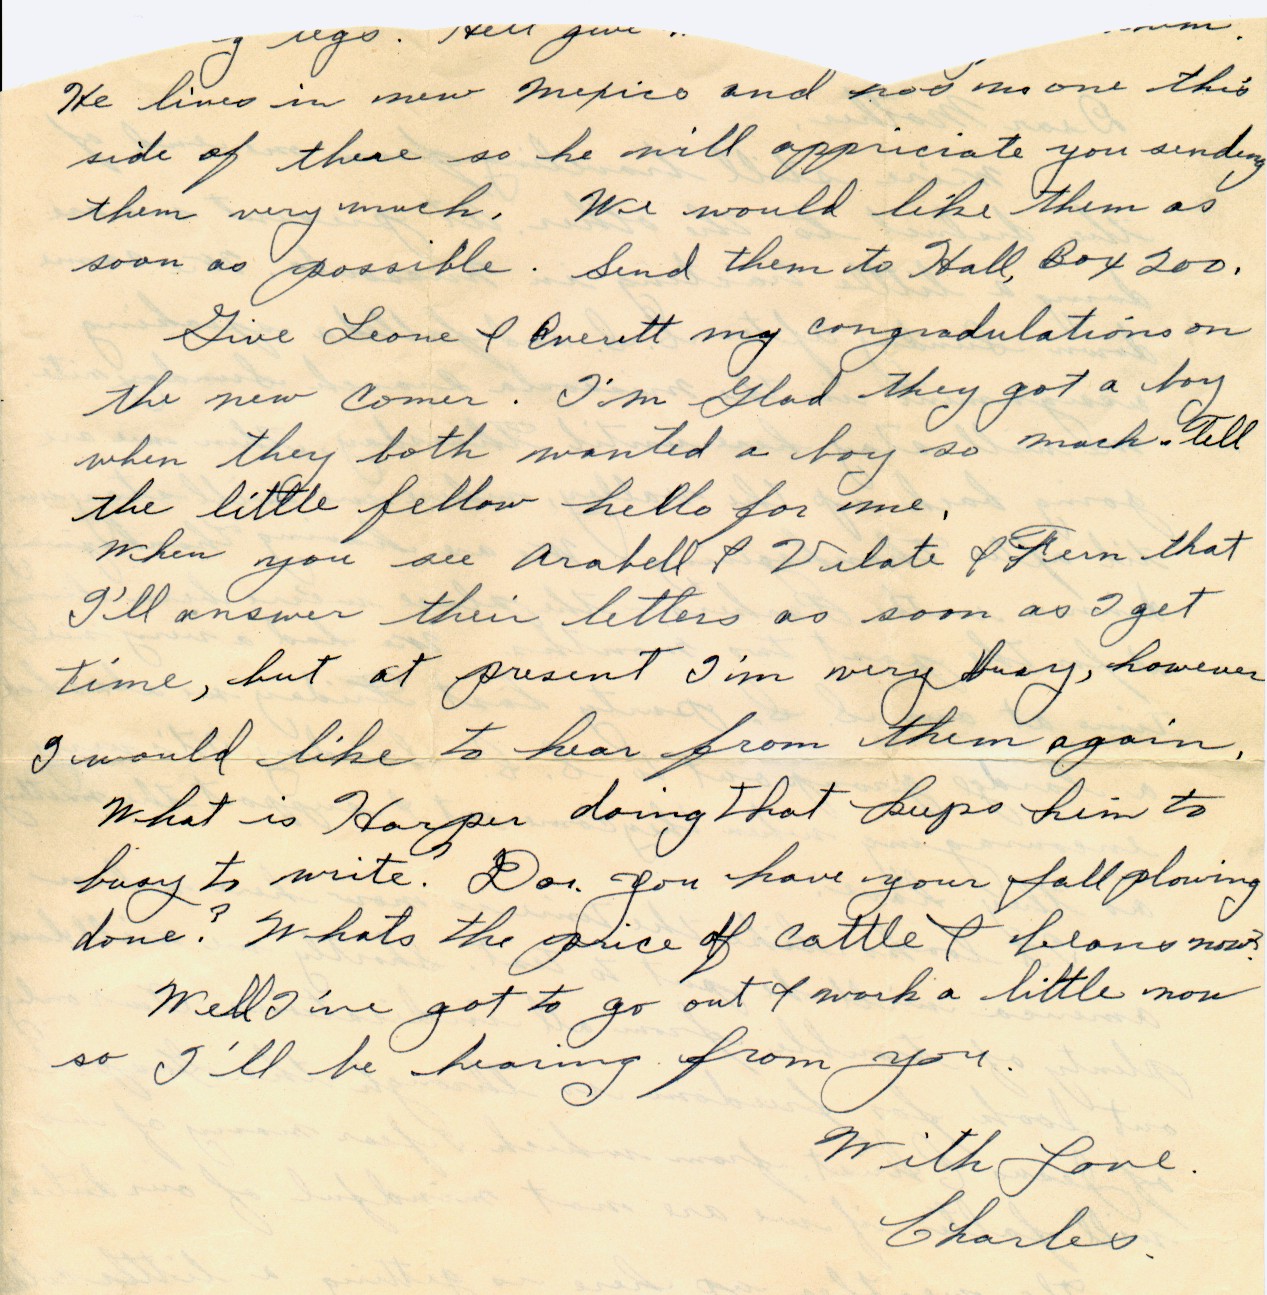 legs. He'll give
He lives in new Mexico and has no one this
side of there so he will appriciate you sending
them very much. We would like them as
soon as possible. Send them to Hall, Box 200.
Give Leone & Everett my congradulations on
the new comer. I'm Glad they got a boy
when they both wanted a boy so much. Tell
the little fellow hello for me.
When you see Arabell & Vilate & Fern that
I'll answer their letters as soon as I get
time, but at present I'm very busy, however
I would like to hear from them again.
What is Harper doing that keeps him to
busy to write? Do you have your fall plowing
done? Whats the price of cattle & beans now?
Well I've got to go out & work a little now
so I'll be hearing from you.
With Love.
Charles.